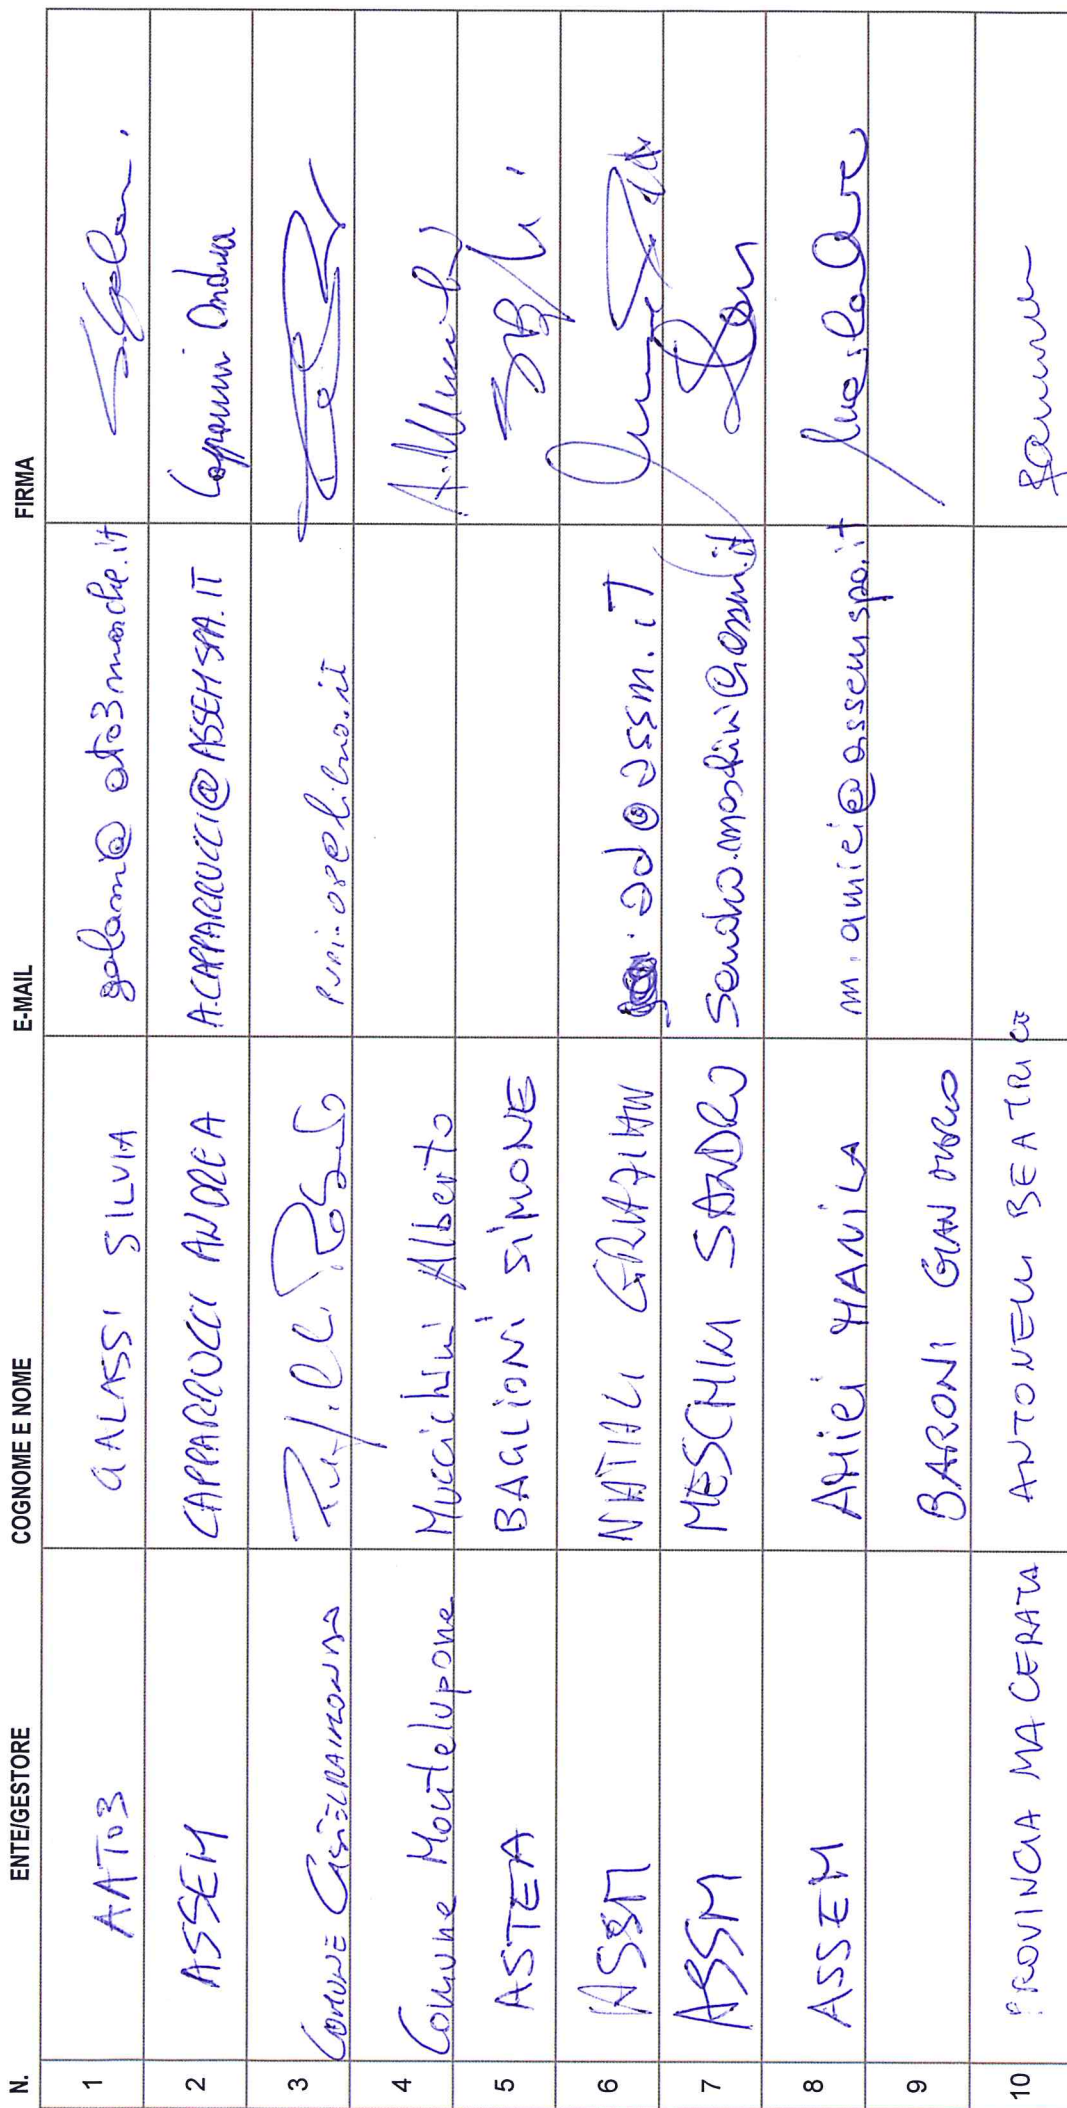 N. ENTE/GESTORE COGNOME E NOME E-MAIL FIRMA
1 AATO3 GALASSI SILVIA galassi@ato3marche.it
2 ASSEM CAPPARRUCCI ANDREA A.CAPPARRUCCI@ASSEMSPA.IT Capparrucci Andrea
3 COMUNE CASTELRAIMONDO
4 Comune Montelupone Muccichini Alberto
5 ASTEA BAGLIONI SIMONE
6 ASSM NATALI GRAZIANO ad@assm.it
7 ASSM MESCHINI SANDRO sandro.meschini@assm.it
8 ASSEM AMICI MANILA m.amici@assemspa.it
9 BARONI GIAN MARCO
10 PROVINCIA MACERATA ANTONELLI BEATRICE